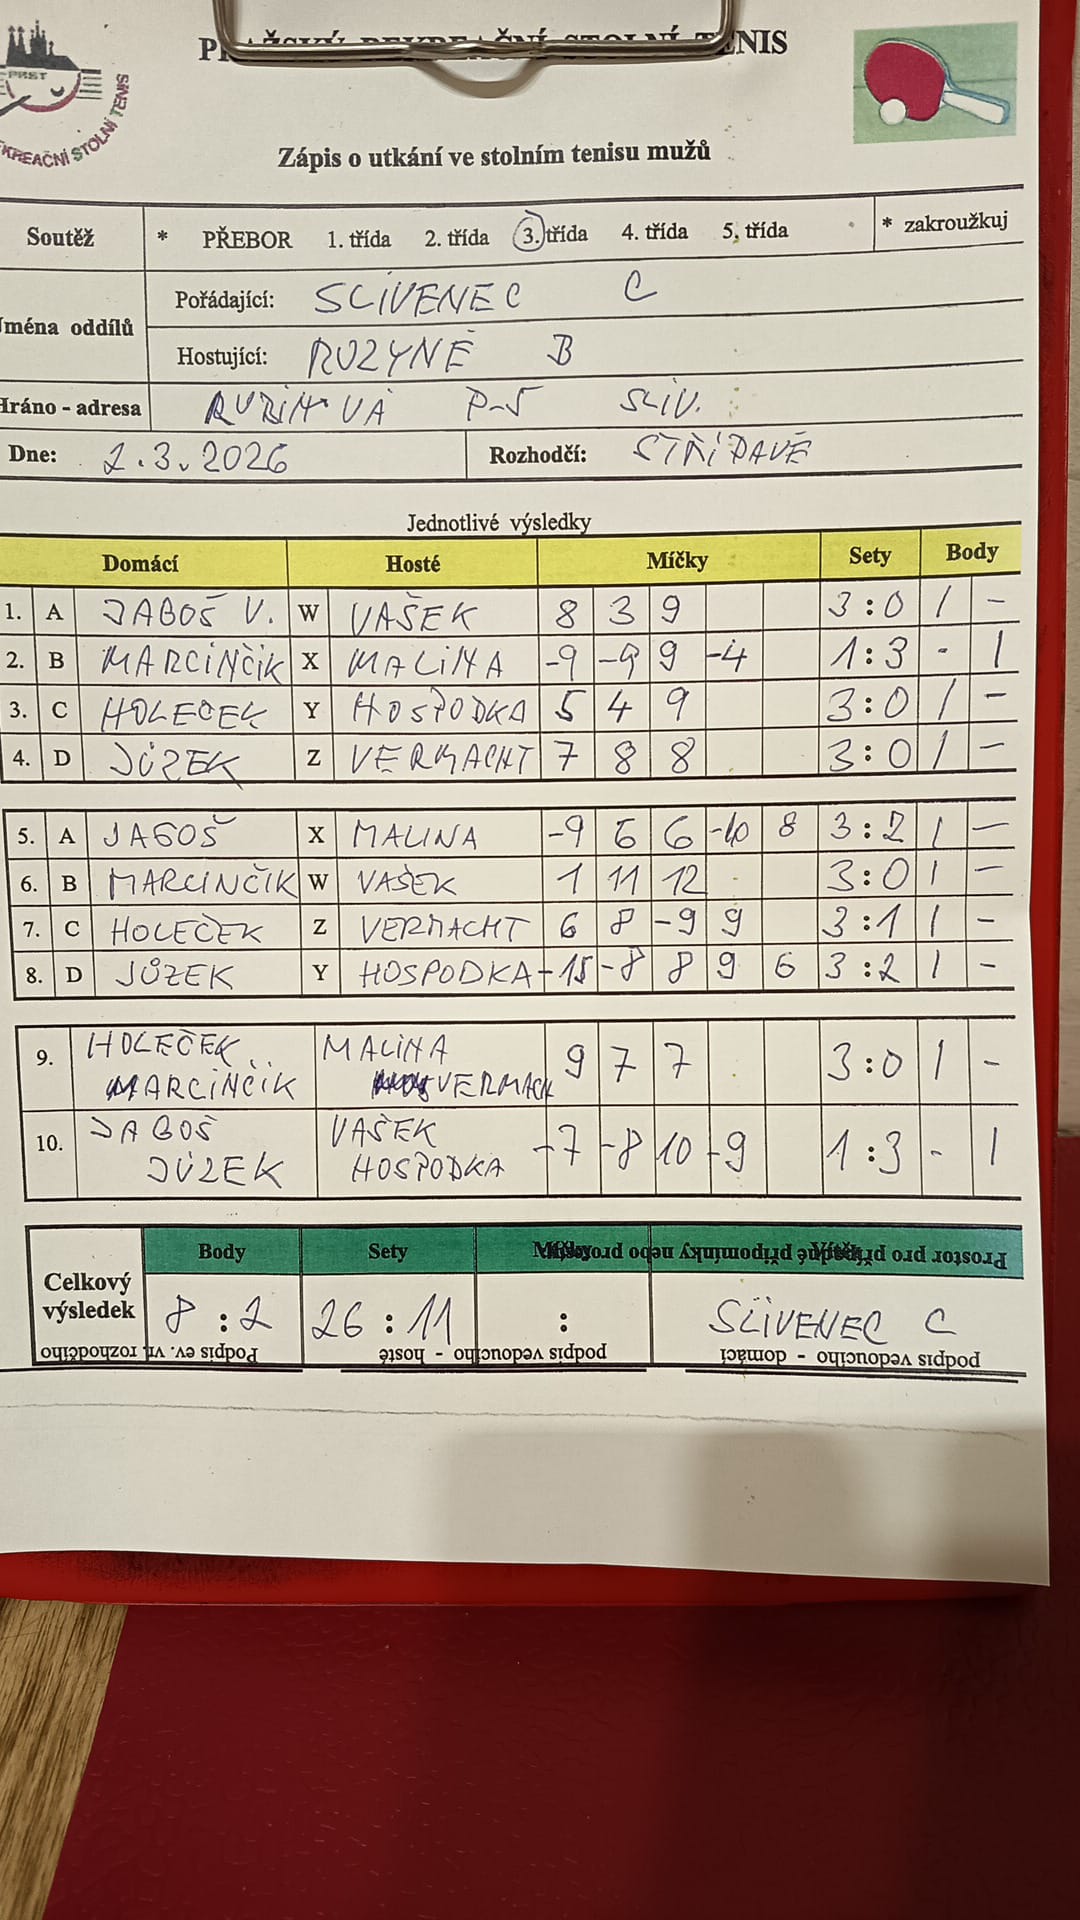 PRAŽSKÝ REKREAČNÍ STOLNÍ TENIS
PRST
REKREAČNÍ STOLNÍ TENIS
Zápis o utkání ve stolním tenisu mužů
Soutěž * PŘEBOR 1. třída 2. třída 3. třída 4. třída 5. třída * zakroužkuj
Jména oddílů
Pořádající: SLIVENEC C
Hostující: RUZYNĚ B
Hráno - adresa P-5 SLIV.
Dne: 2.3.2026 Rozhodčí: STŘÍDAVĚ
Jednotlivé výsledky
Domácí Hosté Míčky Sety Body
1. A JAGOŠ V. W VAŠEK 8 3 9 3:0 1 -
2. B MARCINČIK X MALINA -9 -9 9 -4 1:3 - 1
3. C HOLEČEK Y HOSPODKA 5 4 9 3:0 1 -
4. D JŮZEK Z VERMACHT 7 8 8 3:0 1 -
5. A JAGOŠ X MALINA -9 6 6 -10 8 3:2 1 -
6. B MARCINČIK W VAŠEK 1 11 12 3:0 1 -
7. C HOLEČEK Z VERMACHT 6 8 -9 9 3:1 1 -
8. D JŮZEK Y HOSPODKA -15 -8 8 9 6 3:2 1 -
9. HOLEČEK MALINA 9 7 7 3:0 1 -
MARCINČIK VERMACH
10. JAGOŠ VAŠEK -7 -8 10 -9 1:3 - 1
JŮZEK HOSPODKA
Body Sety Prostor pro případné připomínky nebo protesty
Celkový výsledek 8:2 26:11 : SLIVENEC C
Podpis ev. vr. rozhodčího podpis vedoucího - hosté podpis vedoucího - domácí